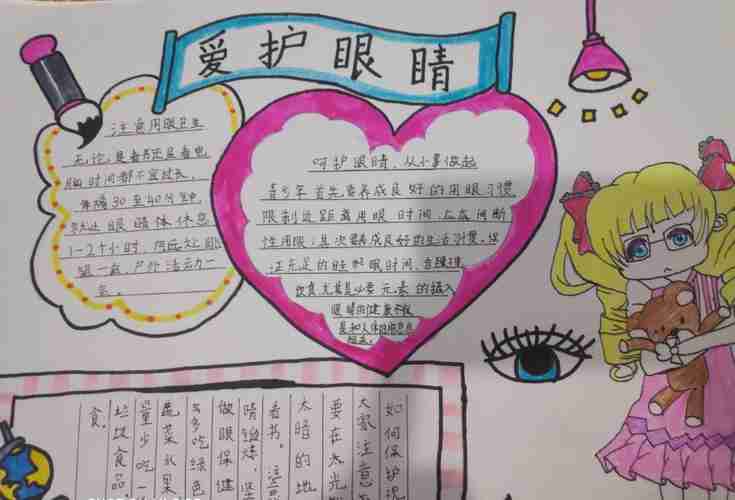 爱护眼睛
注意用眼卫生
无论是看书还是看电
脑时间都不宜过长,
每隔30至40分钟
眼睛休息
1-2十小时,
户外活动一
呵护眼睛、从小事做起
青少年首先要养成良好的用眼习惯
限制近距离用眼时间,应该间断
性用眼;其次要养成良好的生活习惯,保
证充足的睡眠时间,
饮食,尤其是必要元素的摄入
眼睛的健康不仅
如何保护视
大家注意
要在太光
太暗的地
看书。
睛锻炼,坚
做眼保健
多吃绿色
蔬菜水果
量少吃一
垃圾食品
食。